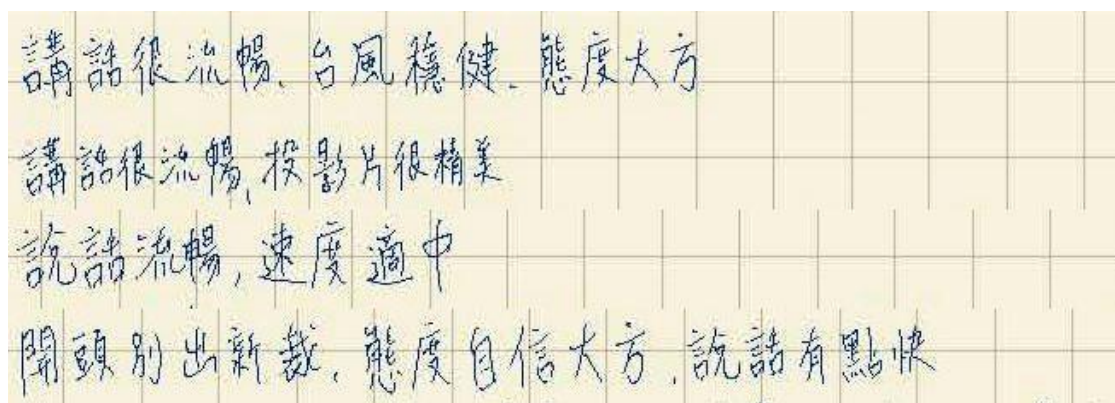 講話很流暢、台風穩健、態度大方
講話很流暢,投影片很精美
說話流暢,速度適中
開頭別出新裁,態度自信大方,說話有點快